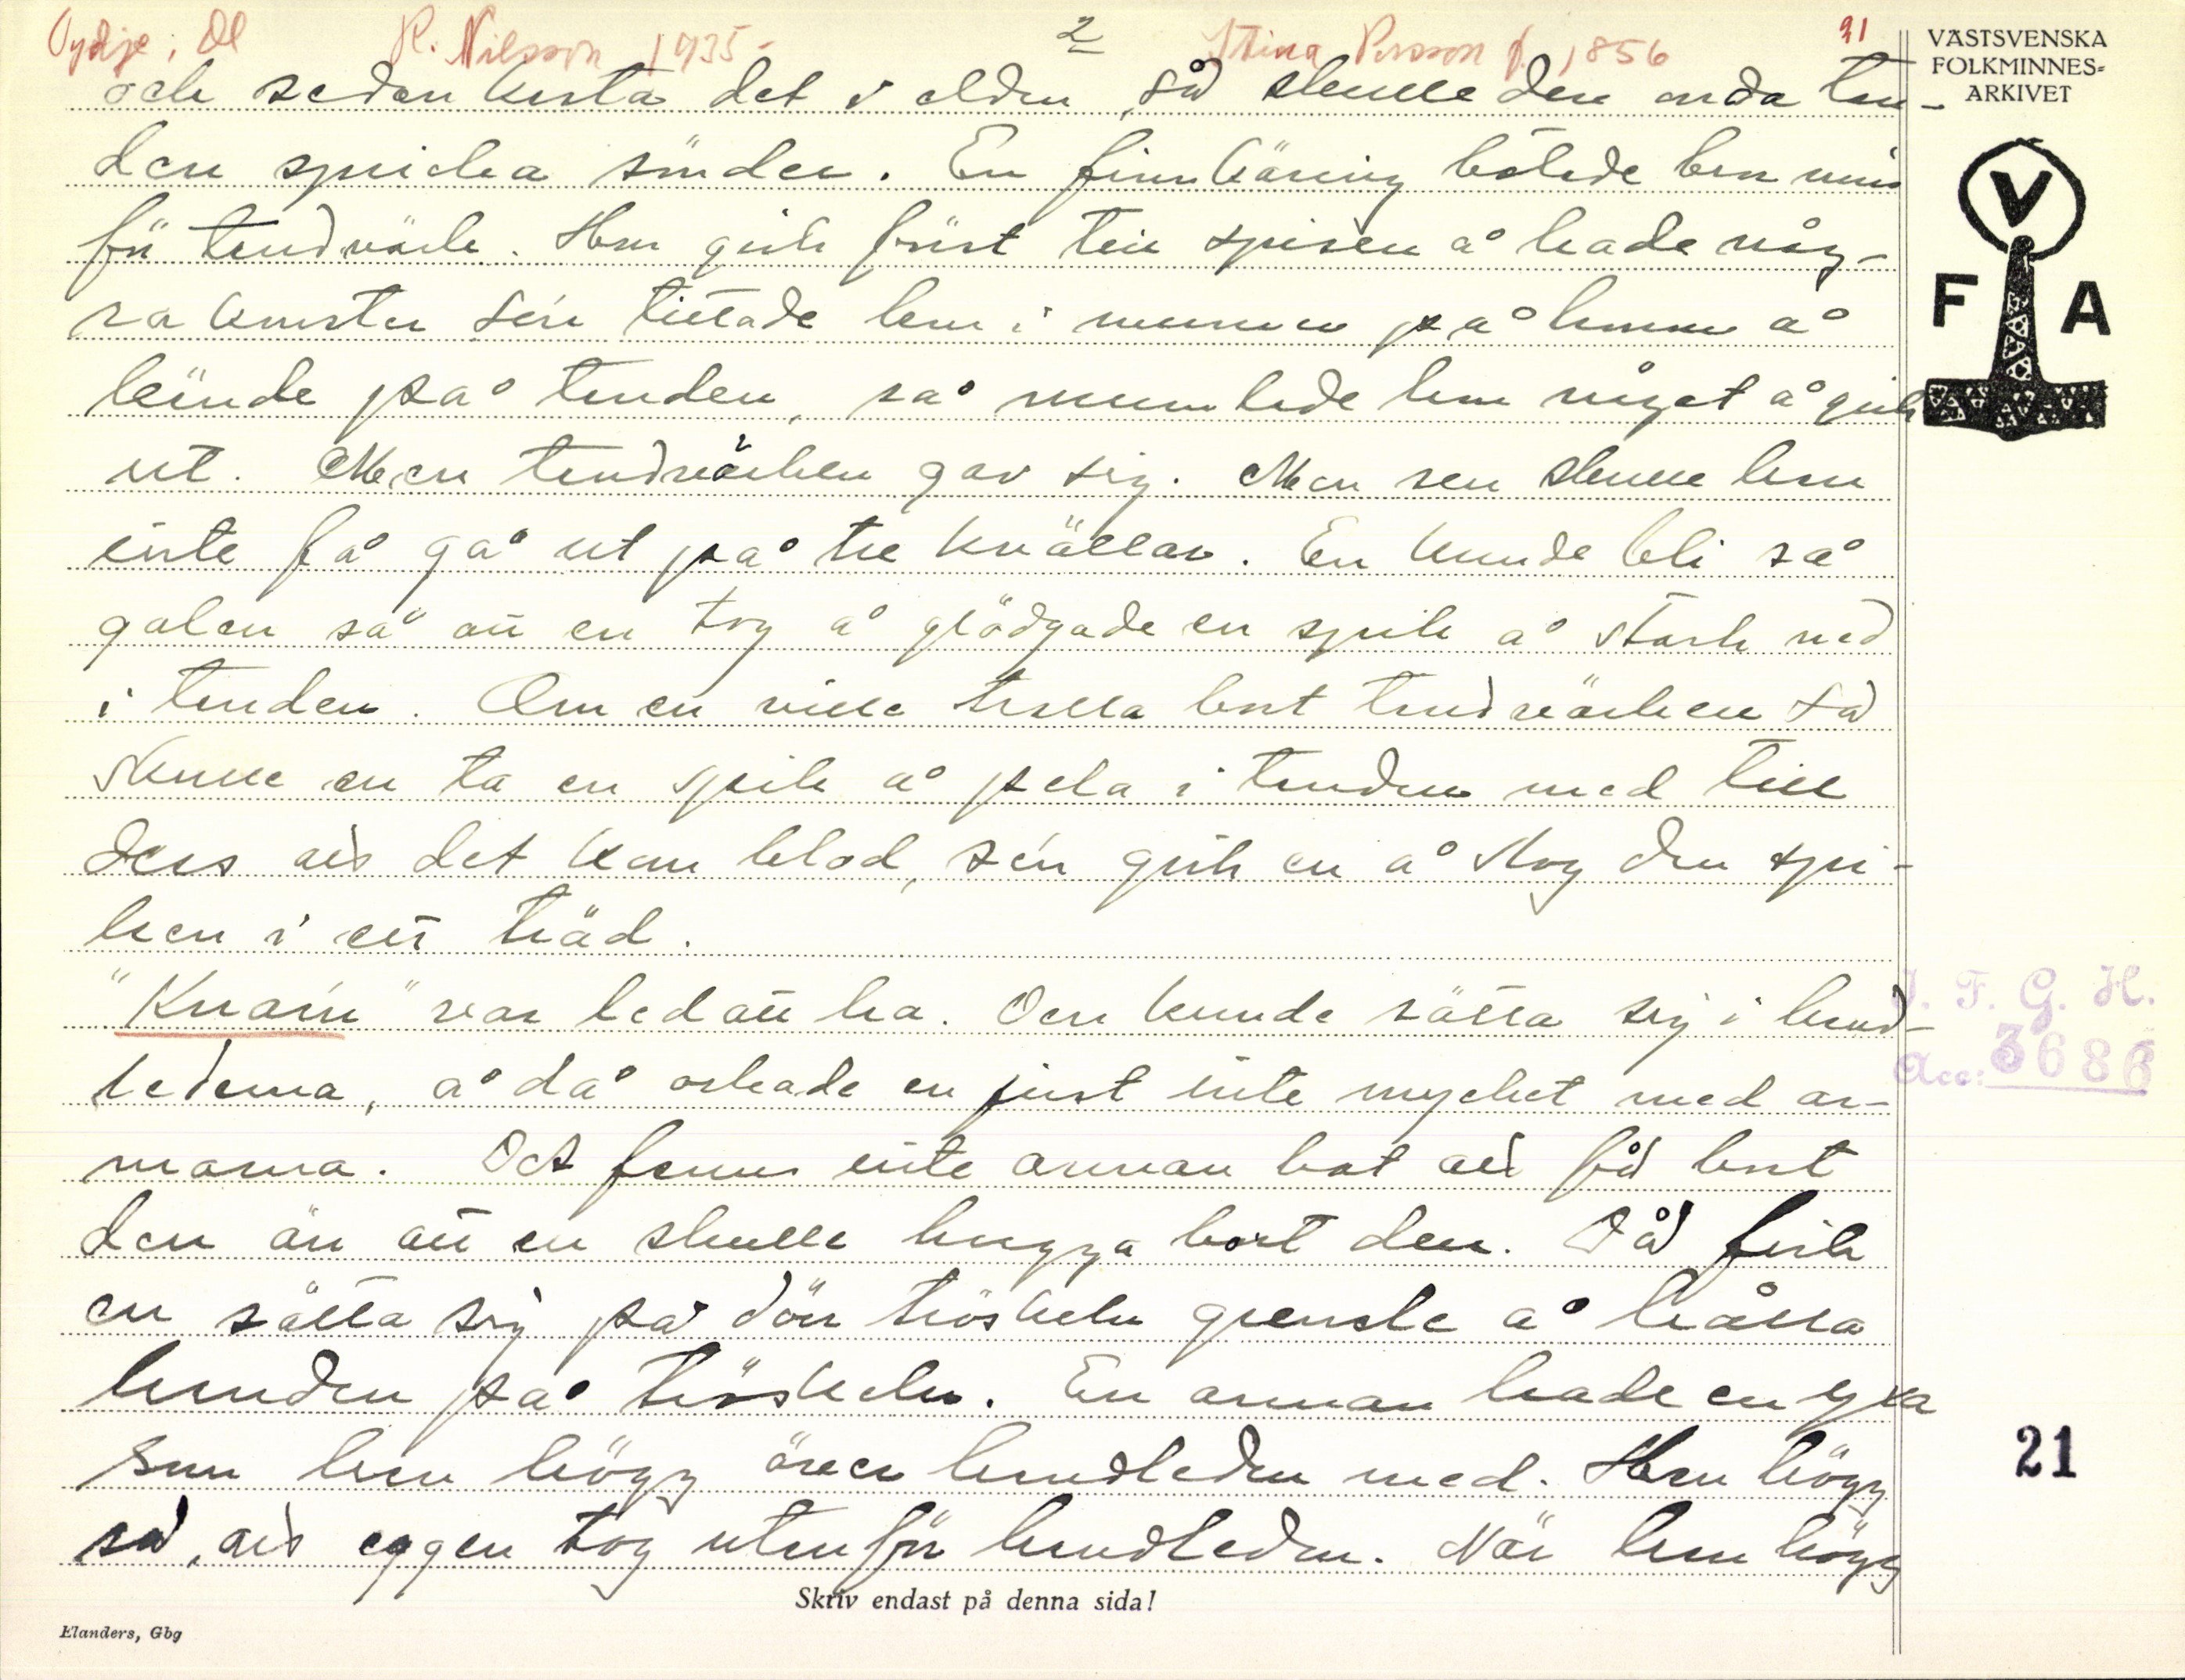 Ödskölt, Dl R. Nilsson 1935- 2 Stina Persson f. 1856 21
VÄSTSVENSKA
FOLKMINNES-
ARKIVET
V
F A
och sedan kasta det i elden, så skulle den onda tan-
den spricka sönder. En finnkäring botade bror min
för tandvärk. Hon gick först till spisen å hade någ-
ra konster sén tittade hon i munnen på honom å
kände på tanden, så mumlade hon något å gick
ut. Men tandvärken gav sig. Men sen skulle han
inte få gå ut på tre kvällar. En kunde bli så
galen så att en tog å glödgade en spik å stack ned
i tanden. Om en ville trolla bort tandvärken så
skulle en ta en spik å pela i tanden med till
dess att det kom blod, sén gick en å slog den spi-
ken i ett träd.
"Knarin" var led att ha. Den kunde sätta sig i hand-
lederna, å då orkade en just inte mycket med ar-
marna. Det fanns inte annan bot att få bort
den än att en skulle hugga bort den. Då fick
en sätta sig på dörrtröskeln grensle å hålla
handen på tröskeln. En annan hade en yxa
som han högg över handleden med. Han högg
så, att eggen tog utanför handleden. När han högg
I. F. G. H.
Acc: 3686
21
Skriv endast på denna sida!
Elanders, Gbg